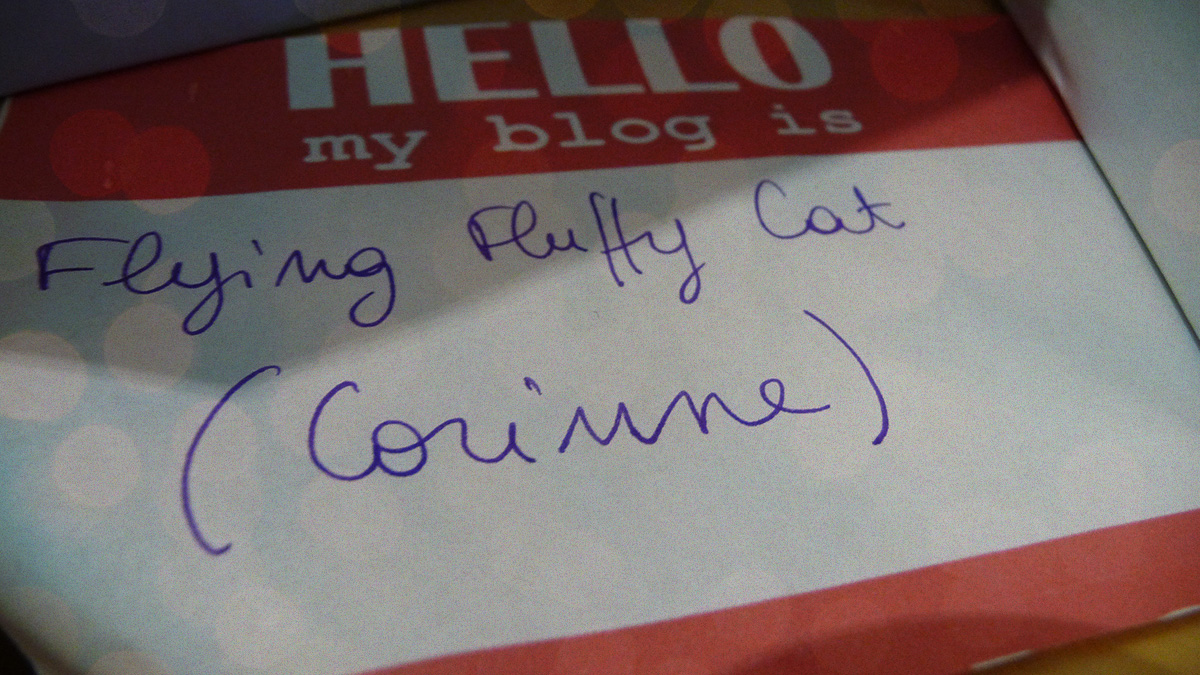 HELLO
my blog is
Flying Fluffy Cat
(Corinne)